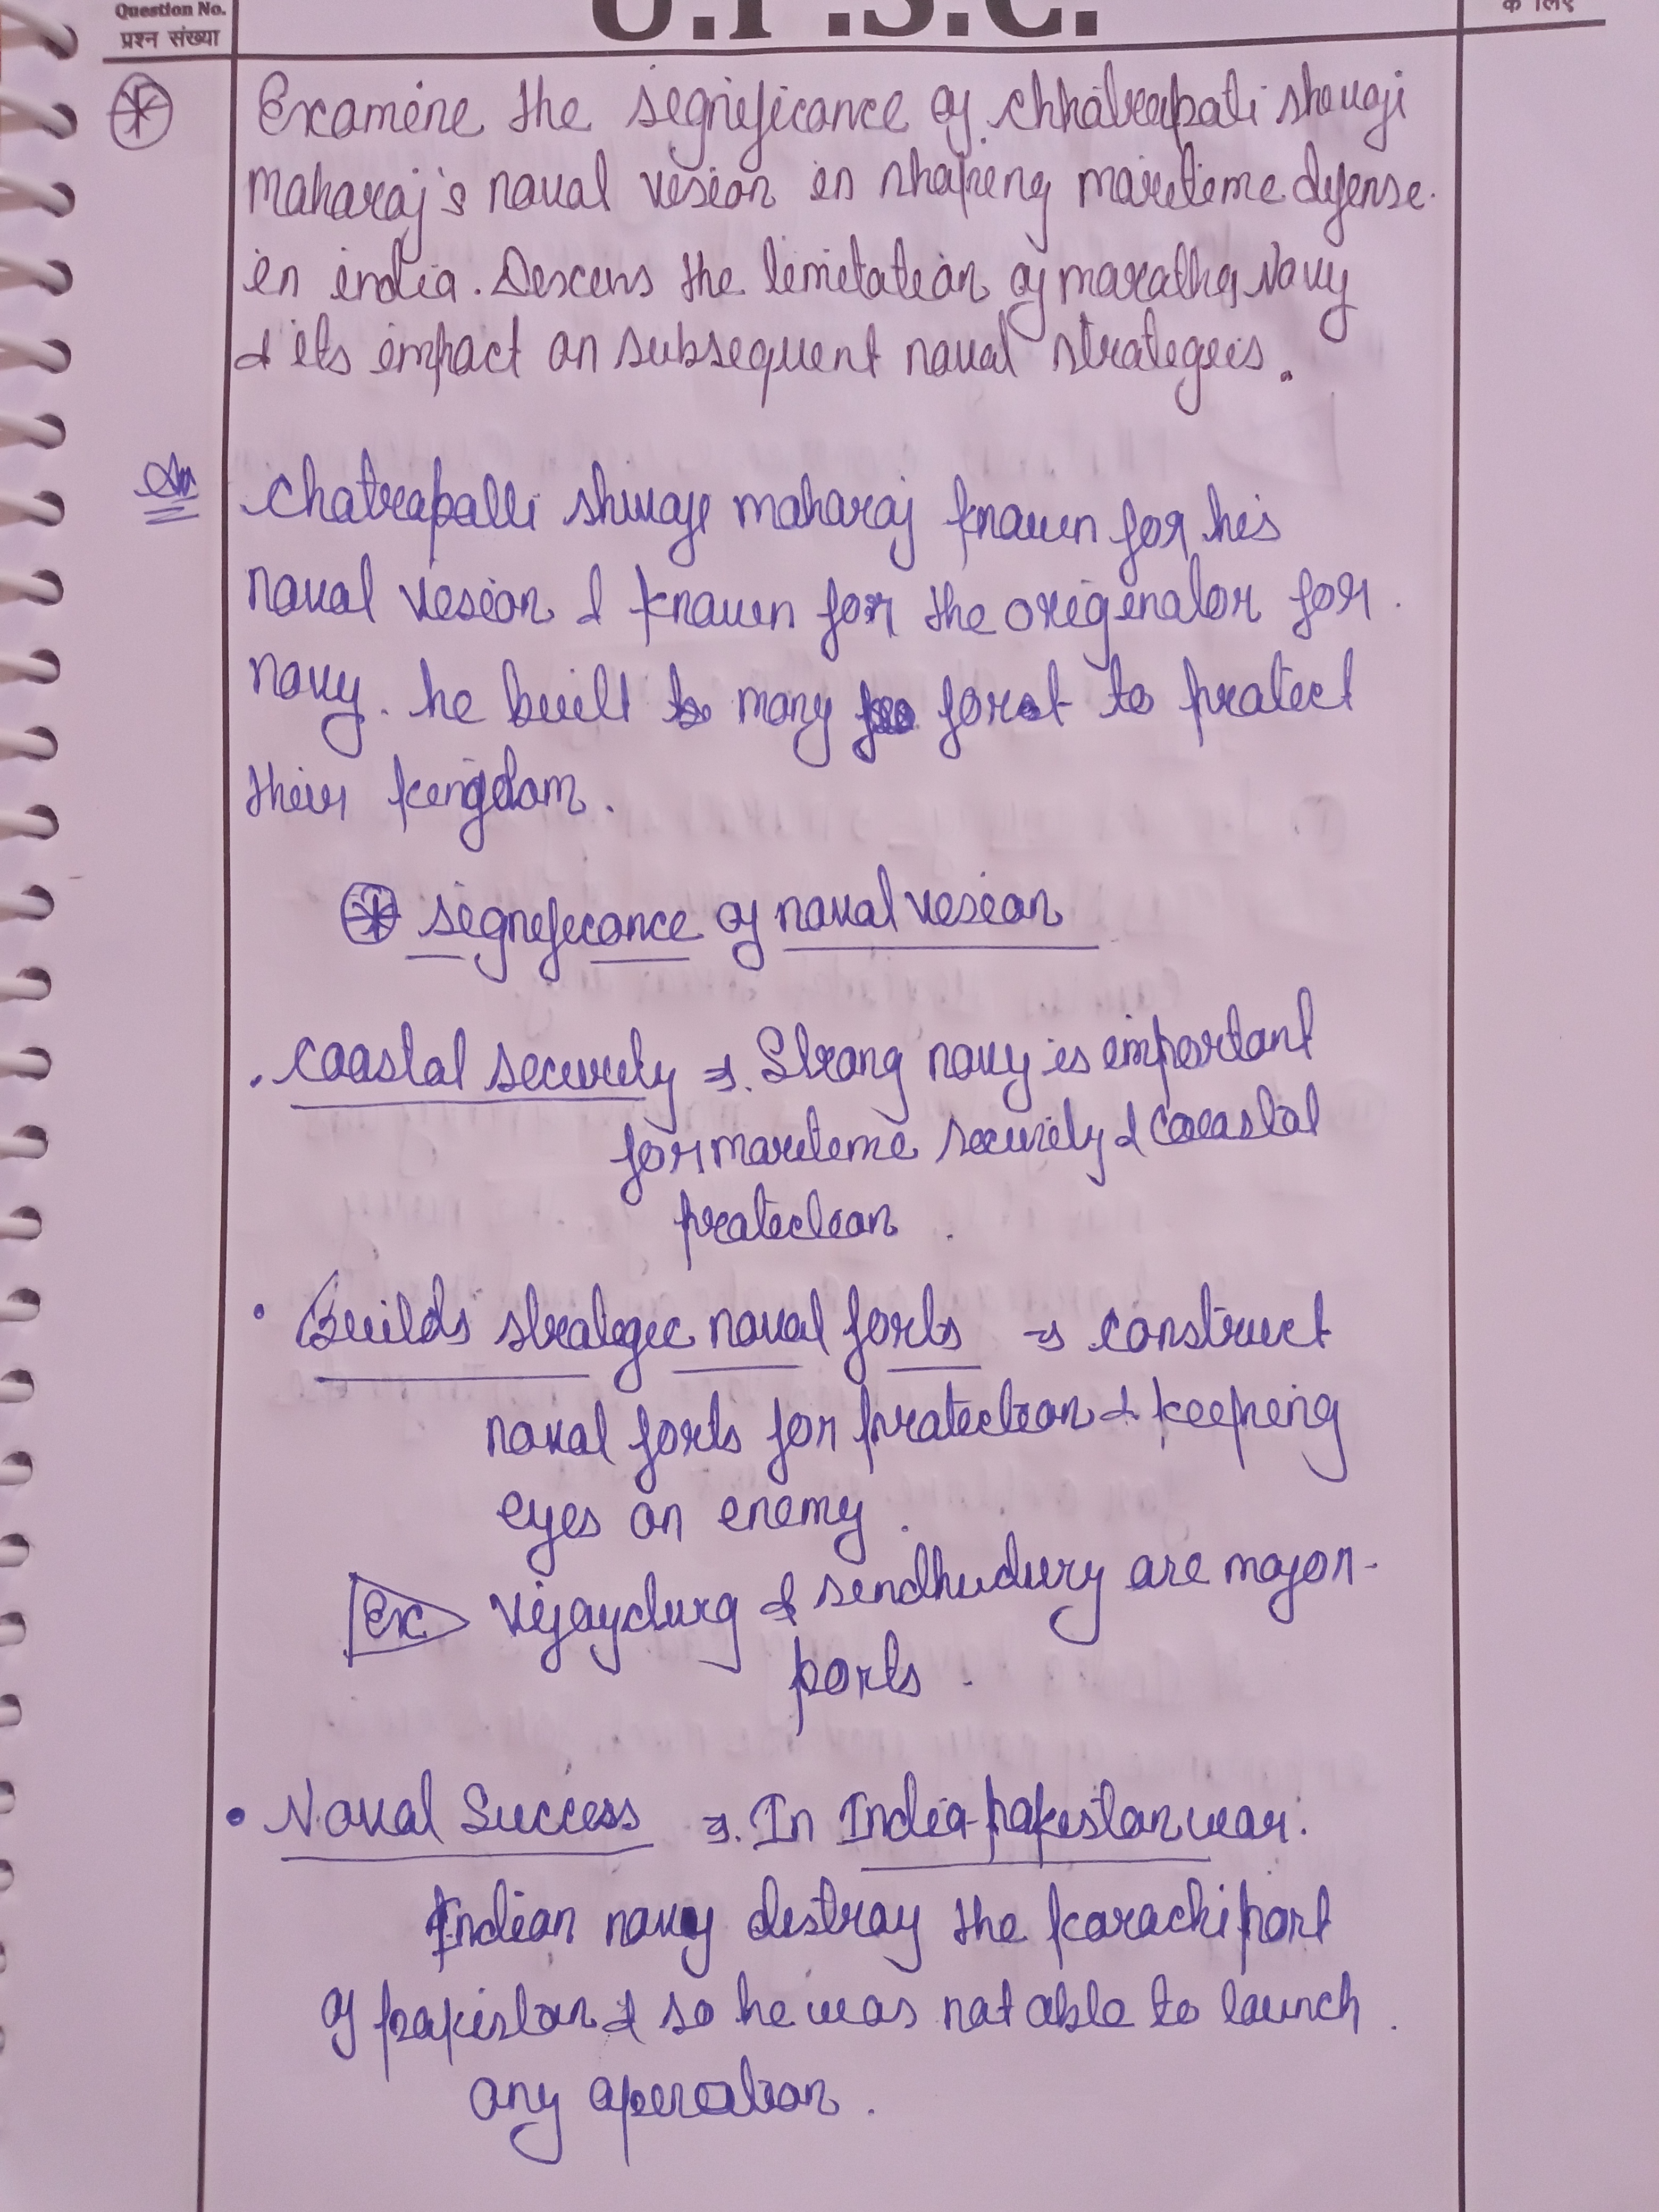 Question No.
प्रश्न संख्या
U.P.S.C.
के लिए
Examine the significance of Chhatrapati Shivaji
Maharaj's naval vision in shaping maritime defense
in india. Discuss the limitation of maratha Navy
& its impact on subsequent naval strategies.
Ans
Chatrapatti Shivaji maharaj known for his
naval vision & known for the originator for
navy. he built many forst to protect
their kingdom.
Significance of naval vision
. Coastal security ⇒. Strong navy is important
for maritime security & Coastal
protection.
• Builds strategic naval forts ⇒ construct
naval forts for protection & keeping
eyes on enemy.
Ex Vijaydurg & sindhudurg are major
ports.
• Naval Success ⇒. In India-pakistan war.
Indian navy destroy the karachi port
of pakistan & so he was not able to launch
any operation.